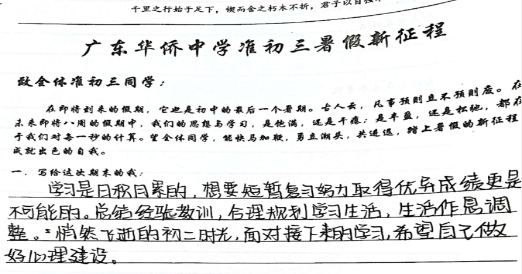 千里之行始于足下,锲而舍之朽木不折,君子以自强
广东华侨中学准初三暑假新征程
致全体准初三同学:
在即将到来的假期,它也是初中的最后一个暑期。古人云,凡事预则立不预则废。在
未来即将八周的假期中,我们的思想与学习,是饱满,还是干瘪;是丰盈,还是松弛,都在
于我们对每一秒的计算。望全体同学,能快马加鞭,勇立潮头,共进退,踏上暑假的新征程
成就出色的自我。
一.写给这次期末的我:
学习是日积月累的,想要短暂复习努力取得优异成绩更是
不可能的。总结经验教训,合理规划学习生活,生活作息调
整。悄然飞逝的初二时光,面对接下来的学习,希望自己做
好心理建设。